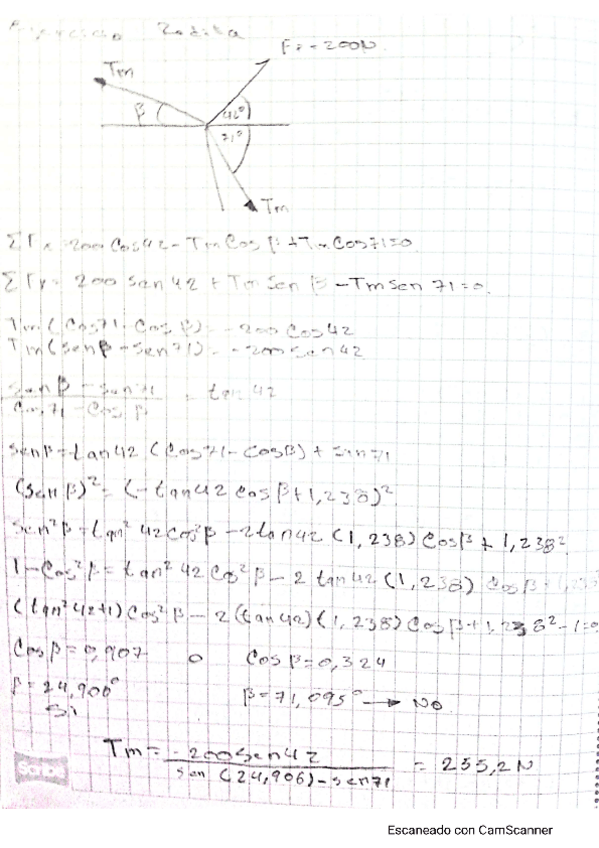 Rodilla
F2 = 200N
Tm
β
42°
71°
Tm
ΣFx = 200 Cos 42 - Tm Cos β + Tm Cos 71 = 0
ΣFy = 200 sen 42 + Tm Sen β - Tm sen 71 = 0
Tm (Cos 71 - Cos β) = -200 Cos 42
Tm (sen β - sen 71) = -200 sen 42
sen β - sen 71 / Cos 71 - Cos β = tan 42
sen β = tan 42 (Cos 71 - Cos β) + sen 71
(sen β)² = (- tan 42 Cos β + 1,238)²
sen² β = tan² 42 cos² β - 2 tan 42 (1,238) Cos β + 1,238²
1 - Cos² β = tan² 42 Cos² β - 2 tan 42 (1,238) Cos β + 1,238²
(tan² 42 + 1) Cos² β - 2 (tan 42) (1,238) Cos β + 1,238² - 1 = 0
Cos β = 0,907 o Cos β = 0,324
β = 24,906° β = 71,095° → No
Si
Tm = -200 sen 42 / sen (24,906) - sen 71 = 255,2 N
Scribe
Escaneado con CamScanner